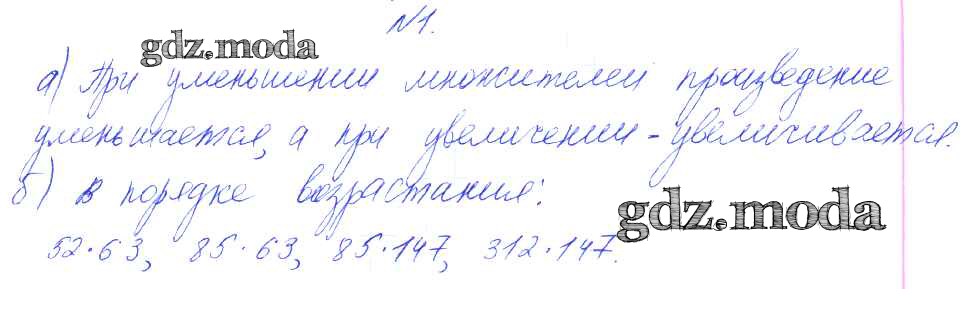 №1.
gdz.moda
а) При уменьшении множителей произведение
уменьшается, а при увеличении - увеличивается.
б) в порядке возрастания:
gdz.moda
52·63, 85·63, 85·147, 312·147.